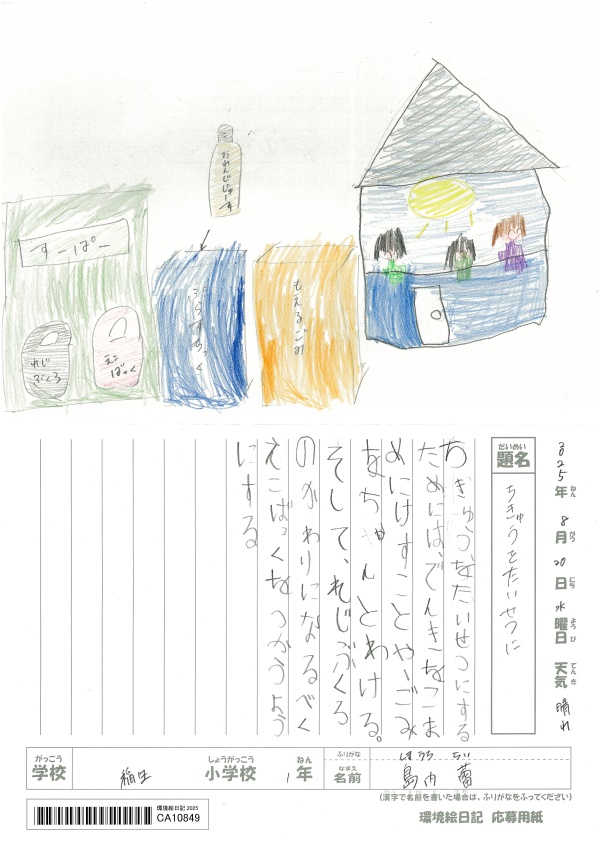 おれんじじゅーす
すーぱー
れじ
ぶくろ
えこ
ばっく
ぷらすちっく
もえるごみ
2025年 8月 20日 水曜日 天気 晴れ
ねん がつ にち ようび てんき
だいめい
題名
ちきゅうをたいせつに
ちきゅうをたいせつにする
ためには、でんきをこま
めにけすことや、ごみ
をちゃんとわける。
そして、れじぶくろ
のかわりになるべく
えこばっくをつかうよう
にする
がっこう しょうがっこう ねん
学校 稲生 小学校 1年
ふりがな らい
なまえ
名前 島内 蕾
(漢字で名前を書いた場合は、ふりがなをふってください)
環境絵日記 2025
CA10849
環境絵日記 応募用紙